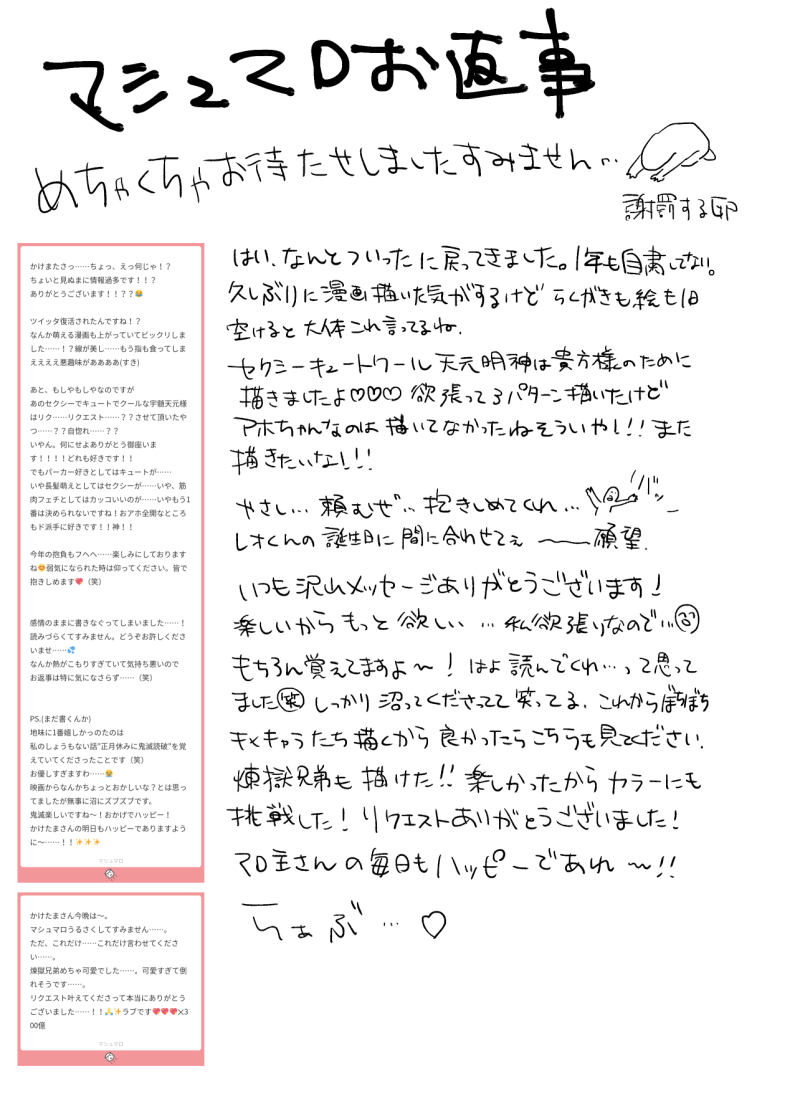 マシュマロお返事
めちゃくちゃお待たせしましたすみません…
謝罪する卵
かけまたさっ……ちょっ、えっ何じゃ！？
ちょいと見ぬまに情報過多です！！？
ありがとうございます！！？？😂
ツイッタ復活されたんですね！？
なんか萌える漫画も上がっていてビックリしま
した……！？線が美し……もう指も食ってしま
えええええ悪趣味がああああ(すき)
あと、もしやもしやなのですが
あのセクシーでキュートでクールな宇髄天元様
はリク……リクエスト……？？させて頂いたや
つ……？？自惚れ……？？
いやん。何にせよありがとう御座いま
す！！！！どれも好きです！！
でもパーカー好きとしてはキュートが……
いや長髪萌えとしてはセクシーが……いや、筋
肉フェチとしてはカッコいいのが……いやもう1
番は決められないですね！おアホ全開なところ
もド派手に好きです！！神！！
今年の抱負もフヘヘ……楽しみにしております
ね😊弱気になられた時は仰ってください。皆で
抱きしめます💖（笑）
感情のままに書きなぐってしまいました……！
読みづらくてすみません。どうぞお許しくださ
いませ……💦
なんか熱がこもりすぎていて気持ち悪いので
お返事は特に気になさらず……（笑）
PS.(まだ書くんか)
地味に1番嬉しかっのたのは
私のしょうもない話"正月休みに鬼滅読破"を覚
えていてくださったことです（笑）
お優しすぎますわ……😭
映画からなんかちょっとおかしいな？とは思っ
てましたが無事に沼にズブズブです。
鬼滅楽しいですね〜！おかげでハッピー！
かけたまさんの明日もハッピーでありますよう
に〜……！！✨✨✨
マシュマロ
かけたまさん今晩は〜。
マシュマロうるさくしてすみません……。
ただ、これだけ……これだけ言わせてくださ
い……。
煉獄兄弟めちゃ可愛でした……。可愛すぎて倒
れそうです……。
リクエスト叶えてくださって本当にありがとう
ございました……！！🙏✨ラブです❤️❤️❤️✕3
00億
マシュマロ
はい、なんとついったに戻ってきました。1年も自粛してない。
久しぶりに漫画描いた気がするけど らくがきも絵も1日
空けると大体これ言ってるね。
セクシーキュートクール天元明神は貴方様のために
描きましたよ♡♡♡ 欲張って3パターン描いたけど
アホちゃんなのは描いてなかったねそういやし!! また
描きたいなし!!!
やさし… 頼むぜ… 抱きしめてくれ…
レオくんの誕生日に間に合わせてぇ 〜〜〜願望.
いつも沢山メッセージありがとうございます！
楽しいからもっと欲しい …私欲張りなので…
もちろん覚えてますよ〜！はよ読んでくれ…って思って
ました笑 しっかり沼ってくださってて笑ってる. これからぼちぼち
キメキャラたち描くから良かったらこちらも見てください.
煉獄兄弟も描けた!! 楽しかったからカラーにも
挑戦した！リクエストありがとうございました！
マロ主さんの毎日もハッピーであれ〜!!
らぁぶ…♡